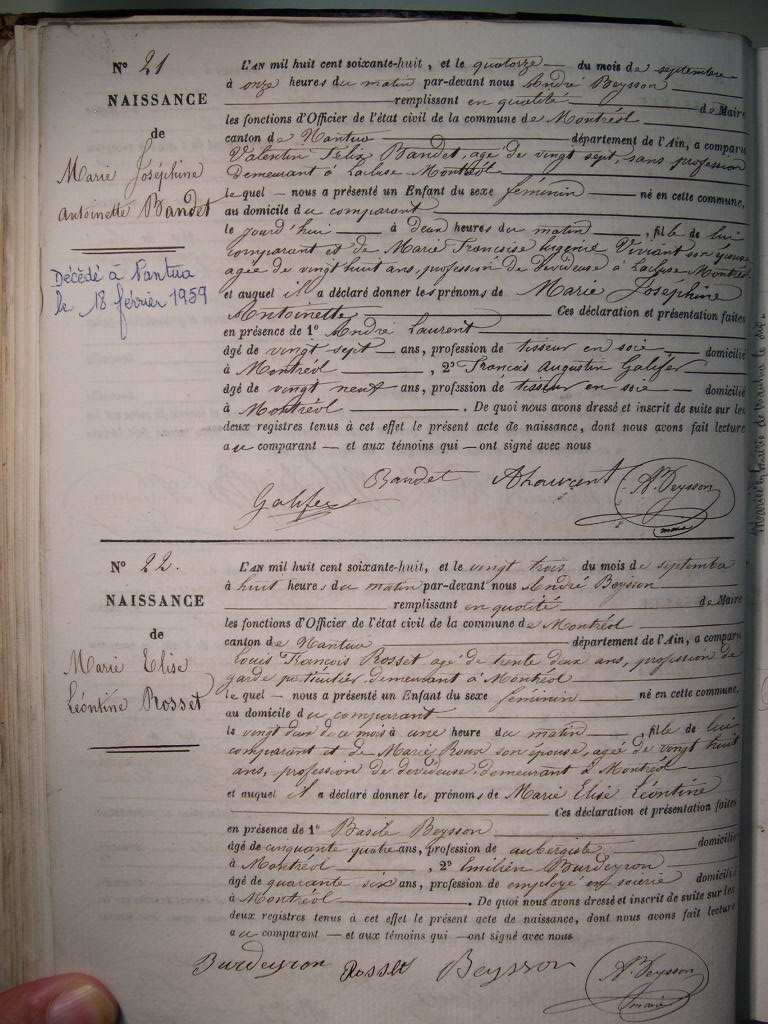 N° 21
NAISSANCE
de
Marie Joséphine
Antoinette Bandet
Décédé à Nantua
le 18 février 1959
L'AN mil huit cent soixante-huit, et le quatorze du mois de septembre
à onze heures du matin par-devant nous André Beysson
remplissant en qualité de Maire
les fonctions d'Officier de l'état civil de la commune de Montréol
canton de Nantua département de l'Ain, a comparu
Valentin Félix Bandet, agé de vingt sept, sans profession
demeurant à Lacluse Montréol
le quel nous a présenté un Enfant du sexe féminin né en cette commune,
au domicile du comparant
le jourd'hui à deux heures du matin, fille de lui
comparant et de Marie Françoise Vivian son épouse
agée de vingt huit ans, profession de dévideuse à Lacluse Montréol
et auquel il a déclaré donner les prénoms de Marie Joséphine
Antoinette Ces déclaration et présentation faites
en présence de 1° André Laurent
âgé de vingt sept ans, profession de tisseur en soie domicilié
à Montréol, 2° François Augustin Galifer
âgé de vingt neuf ans, profession de tisseur en soie domicilié
à Montréol. De quoi nous avons dressé et inscrit de suite sur les
deux registres tenus à cet effet le présent acte de naissance, dont nous avons fait lecture
au comparant et aux témoins qui ont signé avec nous
Bandet A Laurent A. Beysson
Galifer maire
N° 22.
NAISSANCE
de
Marie Elise
Léontine Rosset
L'AN mil huit cent soixante-huit, et le vingt trois du mois de septembre
à huit heures du matin par-devant nous André Beysson
remplissant en qualité de Maire
les fonctions d'Officier de l'état civil de la commune de Montréol
canton de Nantua département de l'Ain, a comparu
Louis François Rosset agé de trente deux ans, profession de
garde particulier demeurant à Montréol
le quel nous a présenté un Enfant du sexe féminin né en cette commune,
au domicile du comparant
le vingt deux de ce mois à une heure du matin, fille de lui
comparant et de Marie Roux son épouse, agée de vingt huit
ans, profession de dévideuse, demeurant à Montréol
et auquel il a déclaré donner les prénoms de Marie Elise Léontine
Ces déclaration et présentation faites
en présence de 1° Basile Beysson
âgé de cinquante quatre ans, profession de aubergiste domicilié
à Montréol, 2° Emilien Burdeyron
âgé de quarante six ans, profession de employé en soierie domicilié
à Montréol. De quoi nous avons dressé et inscrit de suite sur les
deux registres tenus à cet effet le présent acte de naissance, dont nous avons fait lecture
au comparant et aux témoins qui ont signé avec nous
Burdeyron Rosset Beysson A. Beysson
maire